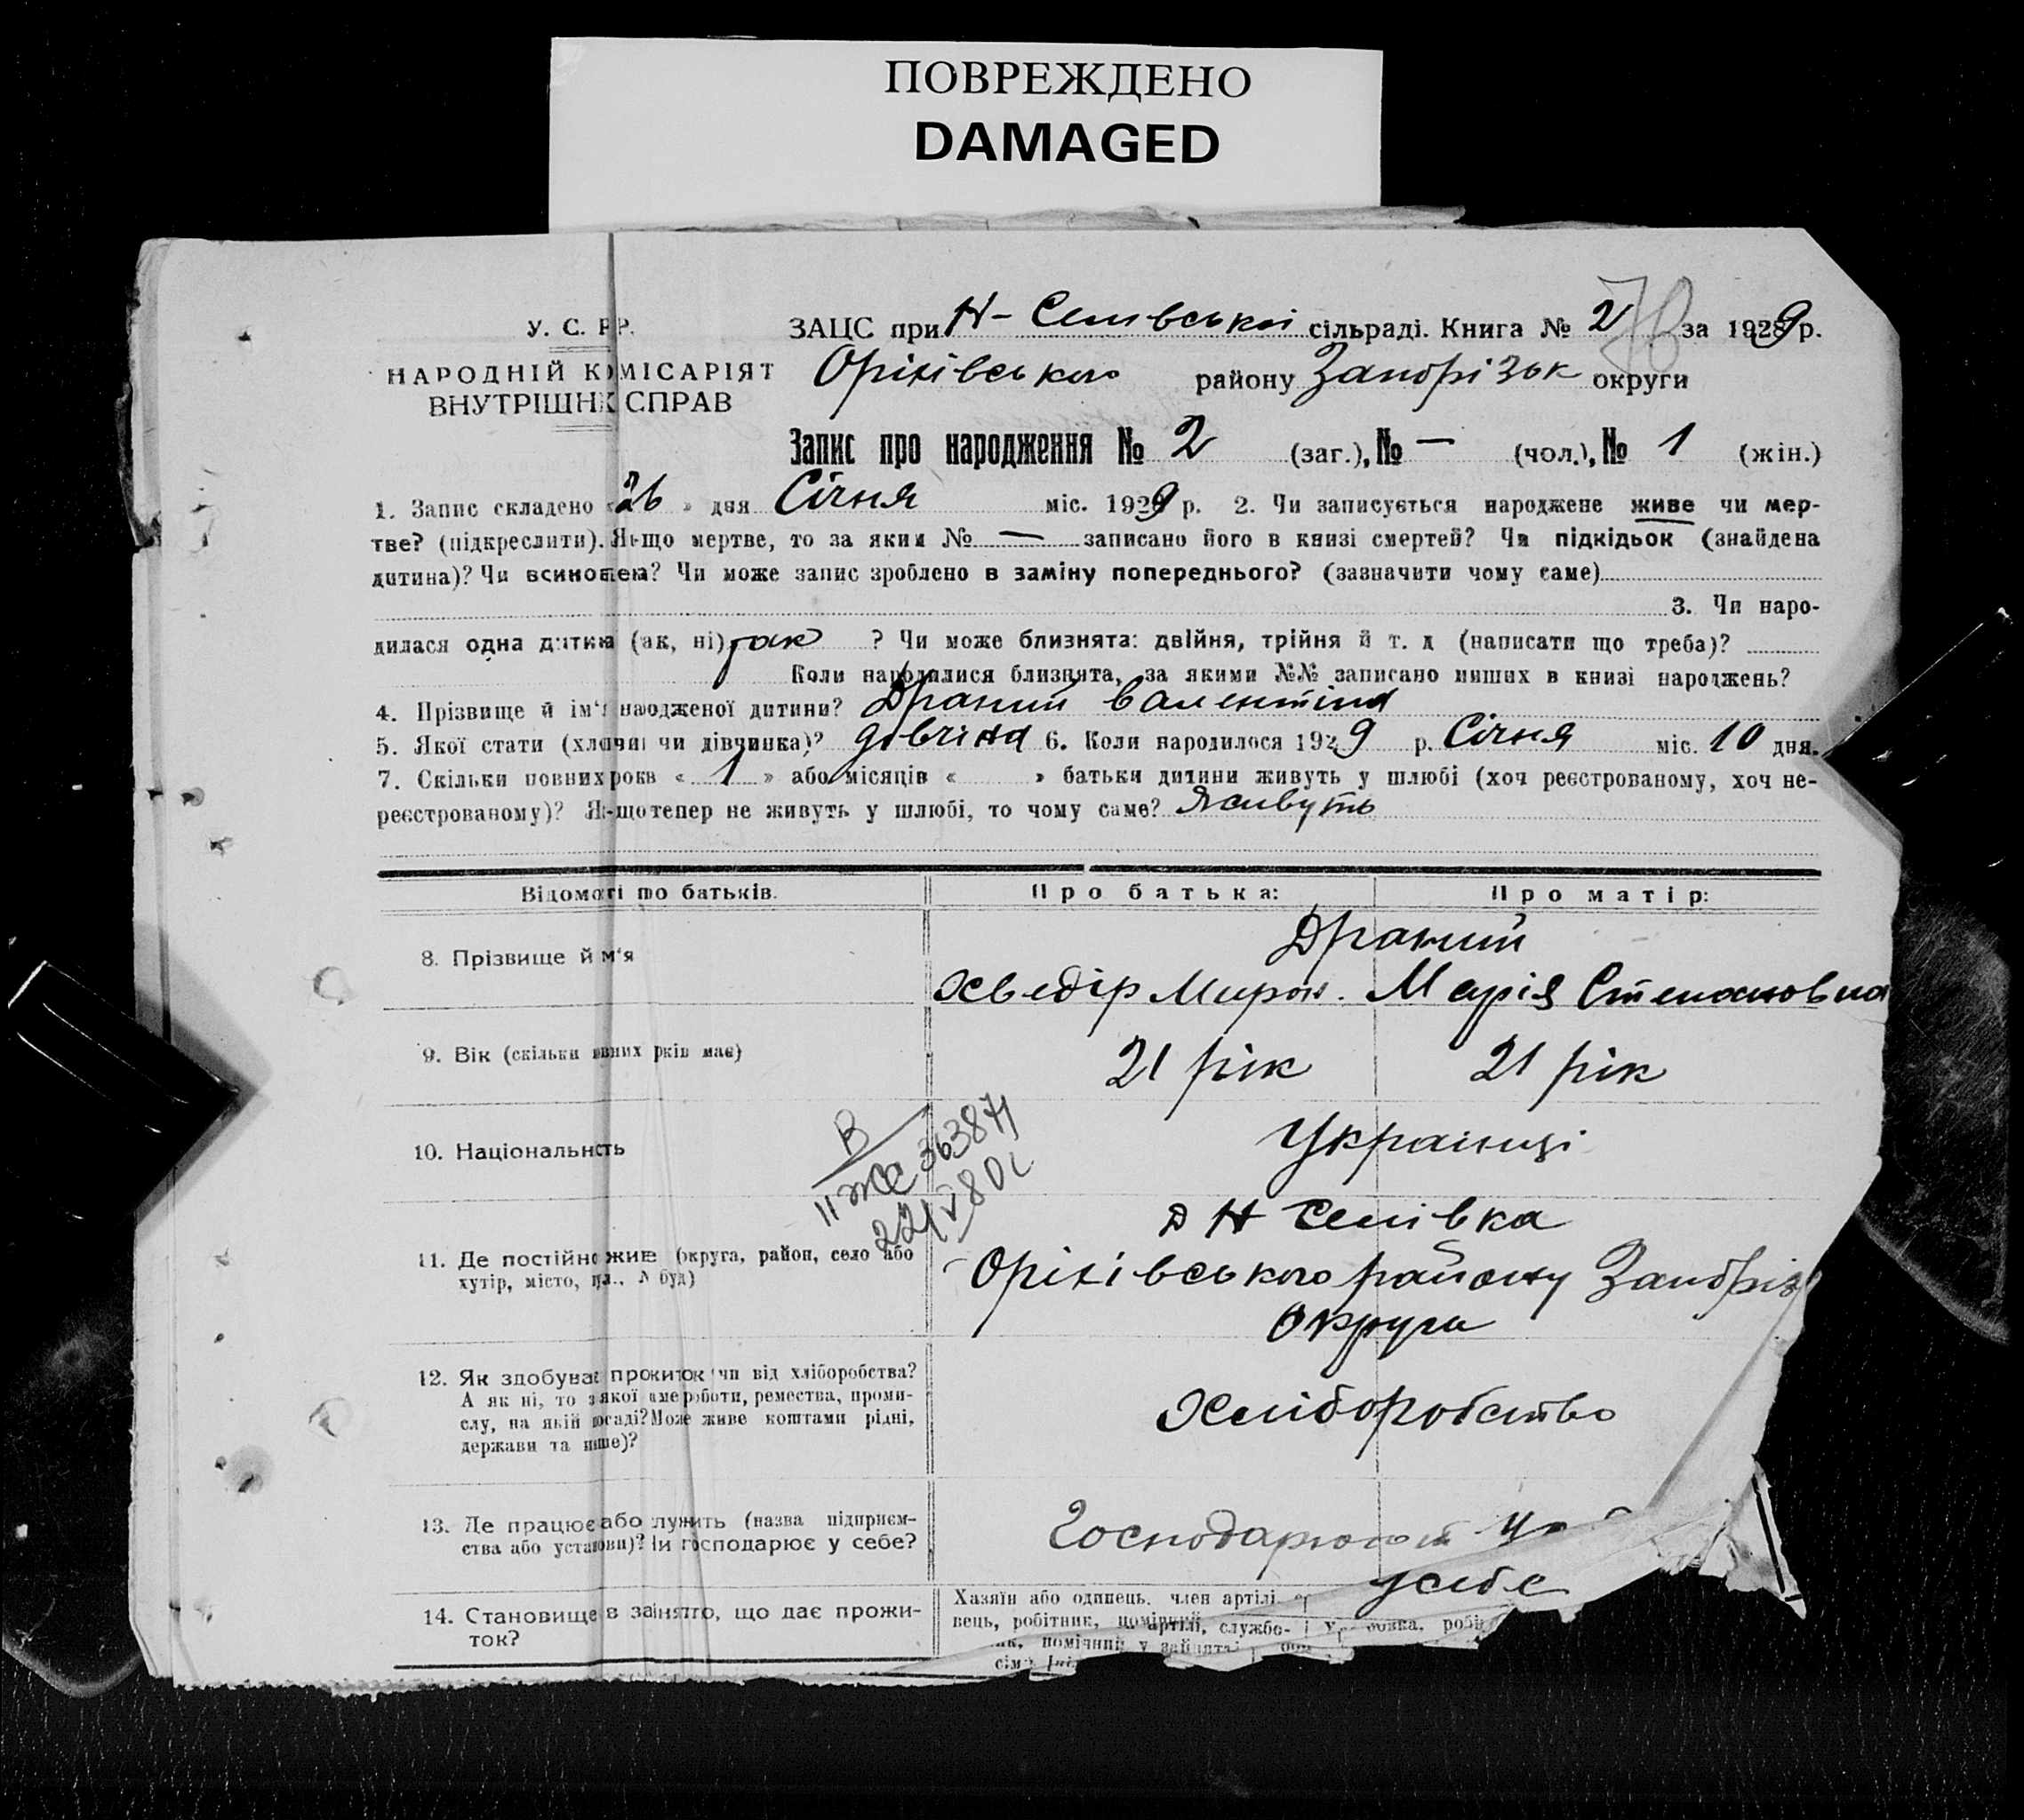 ПОВРЕЖДЕНО
DAMAGED
У. С. Р Р.
НАРОДНІЙ КОМІСАРІЯТ
ВНУТРІШНІХ СПРАВ
ЗАЦС при Н- Селивській сільраді. Книга № 2 за 1929 р.
Оріхівського району Запорізьк округи
Запис про народження № 2 (заг.), № — (чол.), № 1 (жін.)
1. Запис складено «26» дня Січня міс. 1929 р. 2. Чи записується народжене живе чи мер-
тве? (підкреслити). Якщо мертве, то за яким № — записано його в книзі смертей? Чи підкідьок (знайдена
дитина)? Чи всиновлена? Чи може запис зроблено в заміну попереднього? (зазначити чому саме)
3. Чи наро-
дилася одна дитина (так, ні) так ? Чи може близнята: двійня, трійня й т. д (написати що треба)?
Коли народилися близнята, за якими №№ записано инших в книзі народжень?
4. Прізвище й ім'я народженої дитини? Драний Валентіна
5. Якої стати (хлопчик чи дівчинка)? дівчіна 6. Коли народилося 1929 р. Січня міс. 10 дня.
7. Скільки повних років « 1 » або місяців « » батьки дитини живуть у шлюбі (хоч реєстрованому, хоч не-
реєстрованому)? Якщо тепер не живуть у шлюбі, то чому саме? Живуть
Відомості про батьків. Про батька: Про матір:
Драний
8. Прізвище й ім'я
Хведір Мирон. Марія Степановна
9. Вік (скільки повних років має) 21 рік 21 рік
10. Національність Українці
В
II ЖС 363871
Д Н Селівка
11. Де постійно живе (округа, район, село або
хутір, місто, вул., № буд) Оріхівського району Запоріз
Округа
12. Як здобуває прожиток чи від хліборобства?
А як ні, то з якої саме роботи, ремества, проми-
слу, на якій посаді? Може живе коштами рідні,
держави та инше)?
Хліборобство
13. Де працює або служить (назва підприєм-
ства або установи)? Чи господарює у себе?
Господарюють у
усебе
14. Становище в занятті, що дає прожи-
ток?
Хазяїн або одинець, член артілі
вець, робітник, помічний артілі, службо-
помічний у занятті